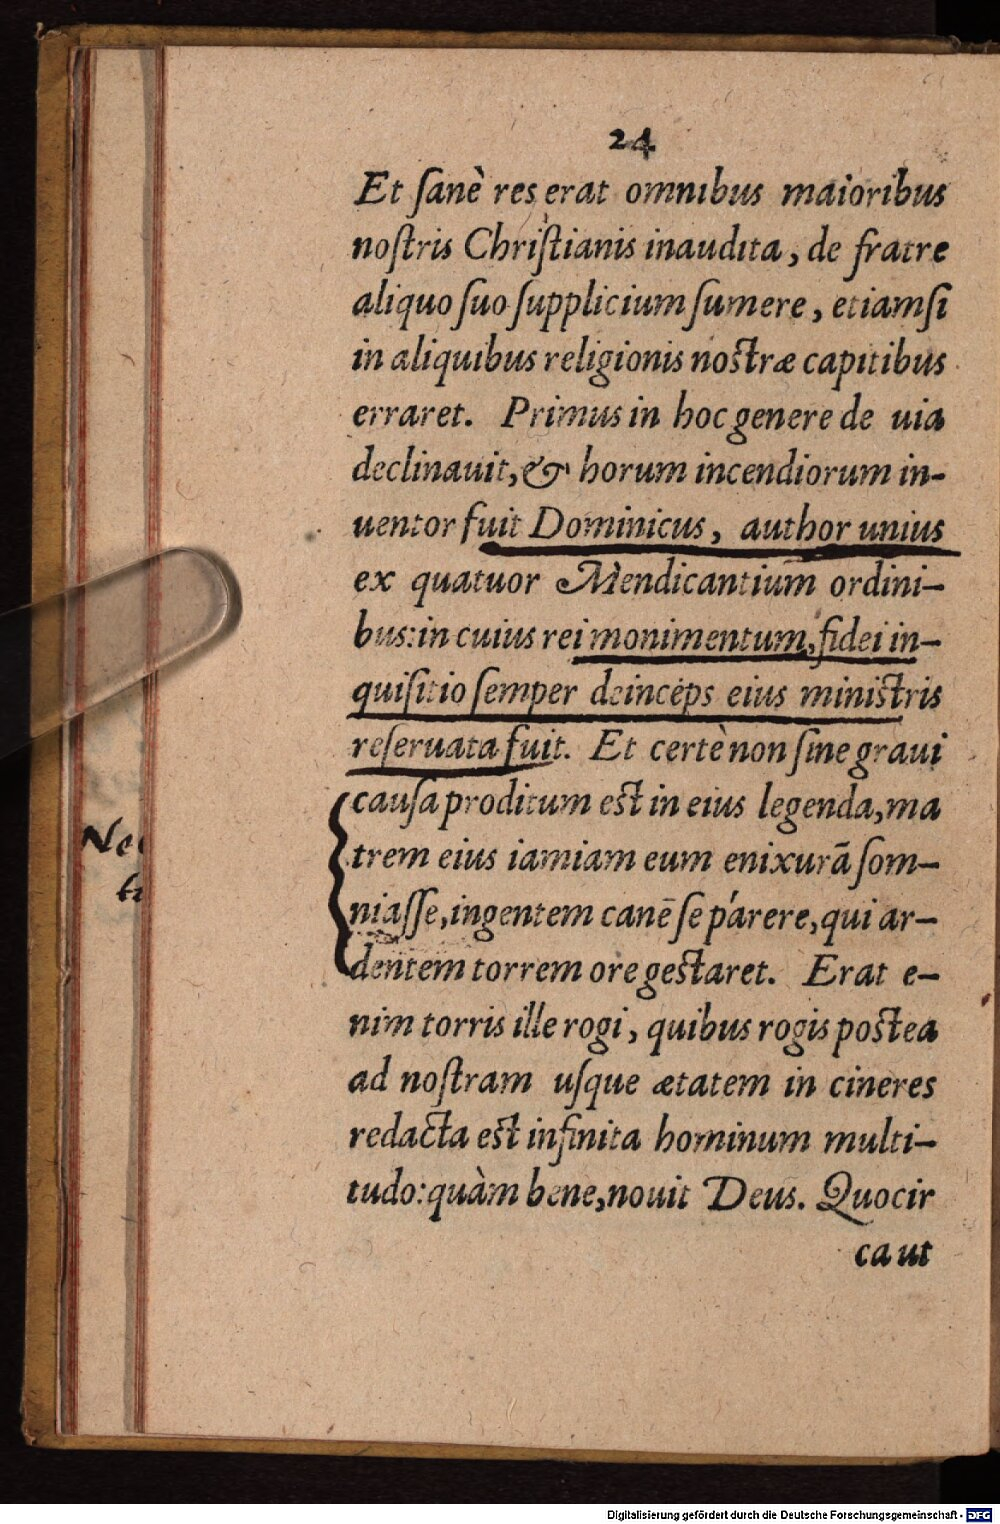 24
Et ſanè res erat omnibus maioribus
noſtris Chriſtianis inaudita, de fratre
aliquo ſuo ſupplicium ſumere, etiamſi
in aliquibus religionis noſtræ capitibus
erraret. Primus in hoc genere de uia
declinauit, & horum incendiorum in-
uentor fuit Dominicus, author unius
ex quatuor Mendicantium ordini-
bus: in cuius rei monimentum, fidei in-
quiſitio ſemper deinceps eius miniſtris
reſeruata fuit. Et certè non ſine graui
cauſa proditum eſt in eius legenda, ma
trem eius iamiam eum enixurā ſom-
niaſſe, ingentem canē ſe parere, qui ar-
dentem torrem ore geſtaret. Erat e-
nim torris ille rogi, quibus rogis poſtea
ad noſtram uſque ætatem in cineres
redacta eſt infinita hominum multi-
tudo: quàm bene, nouit Deus. Quocir
ca ut
Digitalisierung gefördert durch die Deutsche Forschungsgemeinschaft - DFG